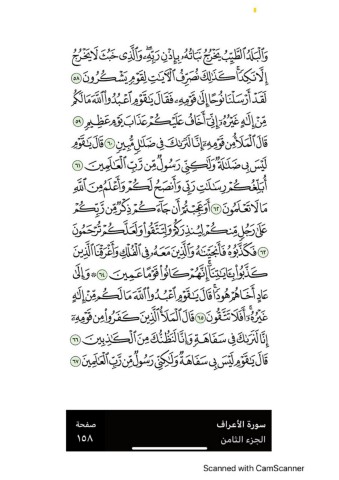 وَٱلْبَلَدُ ٱلطَّيِّبُ يَخْرُجُ نَبَاتُهُۥ بِإِذْنِ رَبِّهِۦۖ وَٱلَّذِى خَبُثَ لَا يَخْرُجُ
إِلَّا نَكِدًاۚ كَذَٰلِكَ نُصَرِّفُ ٱلْءَايَٰتِ لِقَوْمٍ يَشْكُرُونَ ٥٨
لَقَدْ أَرْسَلْنَا نُوحًا إِلَىٰ قَوْمِهِۦ فَقَالَ يَٰقَوْمِ ٱعْبُدُوا۟ ٱللَّهَ مَا لَكُم
مِّنْ إِلَٰهٍ غَيْرُهُۥٓ إِنِّىٓ أَخَافُ عَلَيْكُمْ عَذَابَ يَوْمٍ عَظِيمٍ ٥٩
قَالَ ٱلْمَلَأُ مِن قَوْمِهِۦٓ إِنَّا لَنَرَىٰكَ فِى ضَلَٰلٍ مُّبِينٍ ٦٠ قَالَ يَٰقَوْمِ
لَيْسَ بِى ضَلَٰلَةٌ وَلَٰكِنِّى رَسُولٌ مِّن رَّبِّ ٱلْعَٰلَمِينَ ٦١
أُبَلِّغُكُمْ رِسَٰلَٰتِ رَبِّى وَأَنصَحُ لَكُمْ وَأَعْلَمُ مِنَ ٱللَّهِ
مَا لَا تَعْلَمُونَ ٦٢ أَوَعَجِبْتُمْ أَن جَآءَكُمْ ذِكْرٌ مِّن رَّبِّكُمْ
عَلَىٰ رَجُلٍ مِّنكُمْ لِيُنذِرَكُمْ وَلِتَتَّقُوا۟ وَلَعَلَّكُمْ تُرْحَمُونَ
٦٣ فَكَذَّبُوهُ فَأَنجَيْنَٰهُ وَٱلَّذِينَ مَعَهُۥ فِى ٱلْفُلْكِ وَأَغْرَقْنَا ٱلَّذِينَ
كَذَّبُوا۟ بِـَٔايَٰتِنَآۚ إِنَّهُمْ كَانُوا۟ قَوْمًا عَمِينَ ٦٤ ۞ وَإِلَىٰ
عَادٍ أَخَاهُمْ هُودًاۗ قَالَ يَٰقَوْمِ ٱعْبُدُوا۟ ٱللَّهَ مَا لَكُم مِّنْ إِلَٰهٍ
غَيْرُهُۥٓۚ أَفَلَا تَتَّقُونَ ٦٥ قَالَ ٱلْمَلَأُ ٱلَّذِينَ كَفَرُوا۟ مِن قَوْمِهِۦٓ
إِنَّا لَنَرَىٰكَ فِى سَفَاهَةٍ وَإِنَّا لَنَظُنُّكَ مِنَ ٱلْكَٰذِبِينَ ٦٦
قَالَ يَٰقَوْمِ لَيْسَ بِى سَفَاهَةٌ وَلَٰكِنِّى رَسُولٌ مِّن رَّبِّ ٱلْعَٰلَمِينَ ٦٧
سورة الأعراف صفحة
الجزء الثامن ١٥٨
Scanned with CamScanner